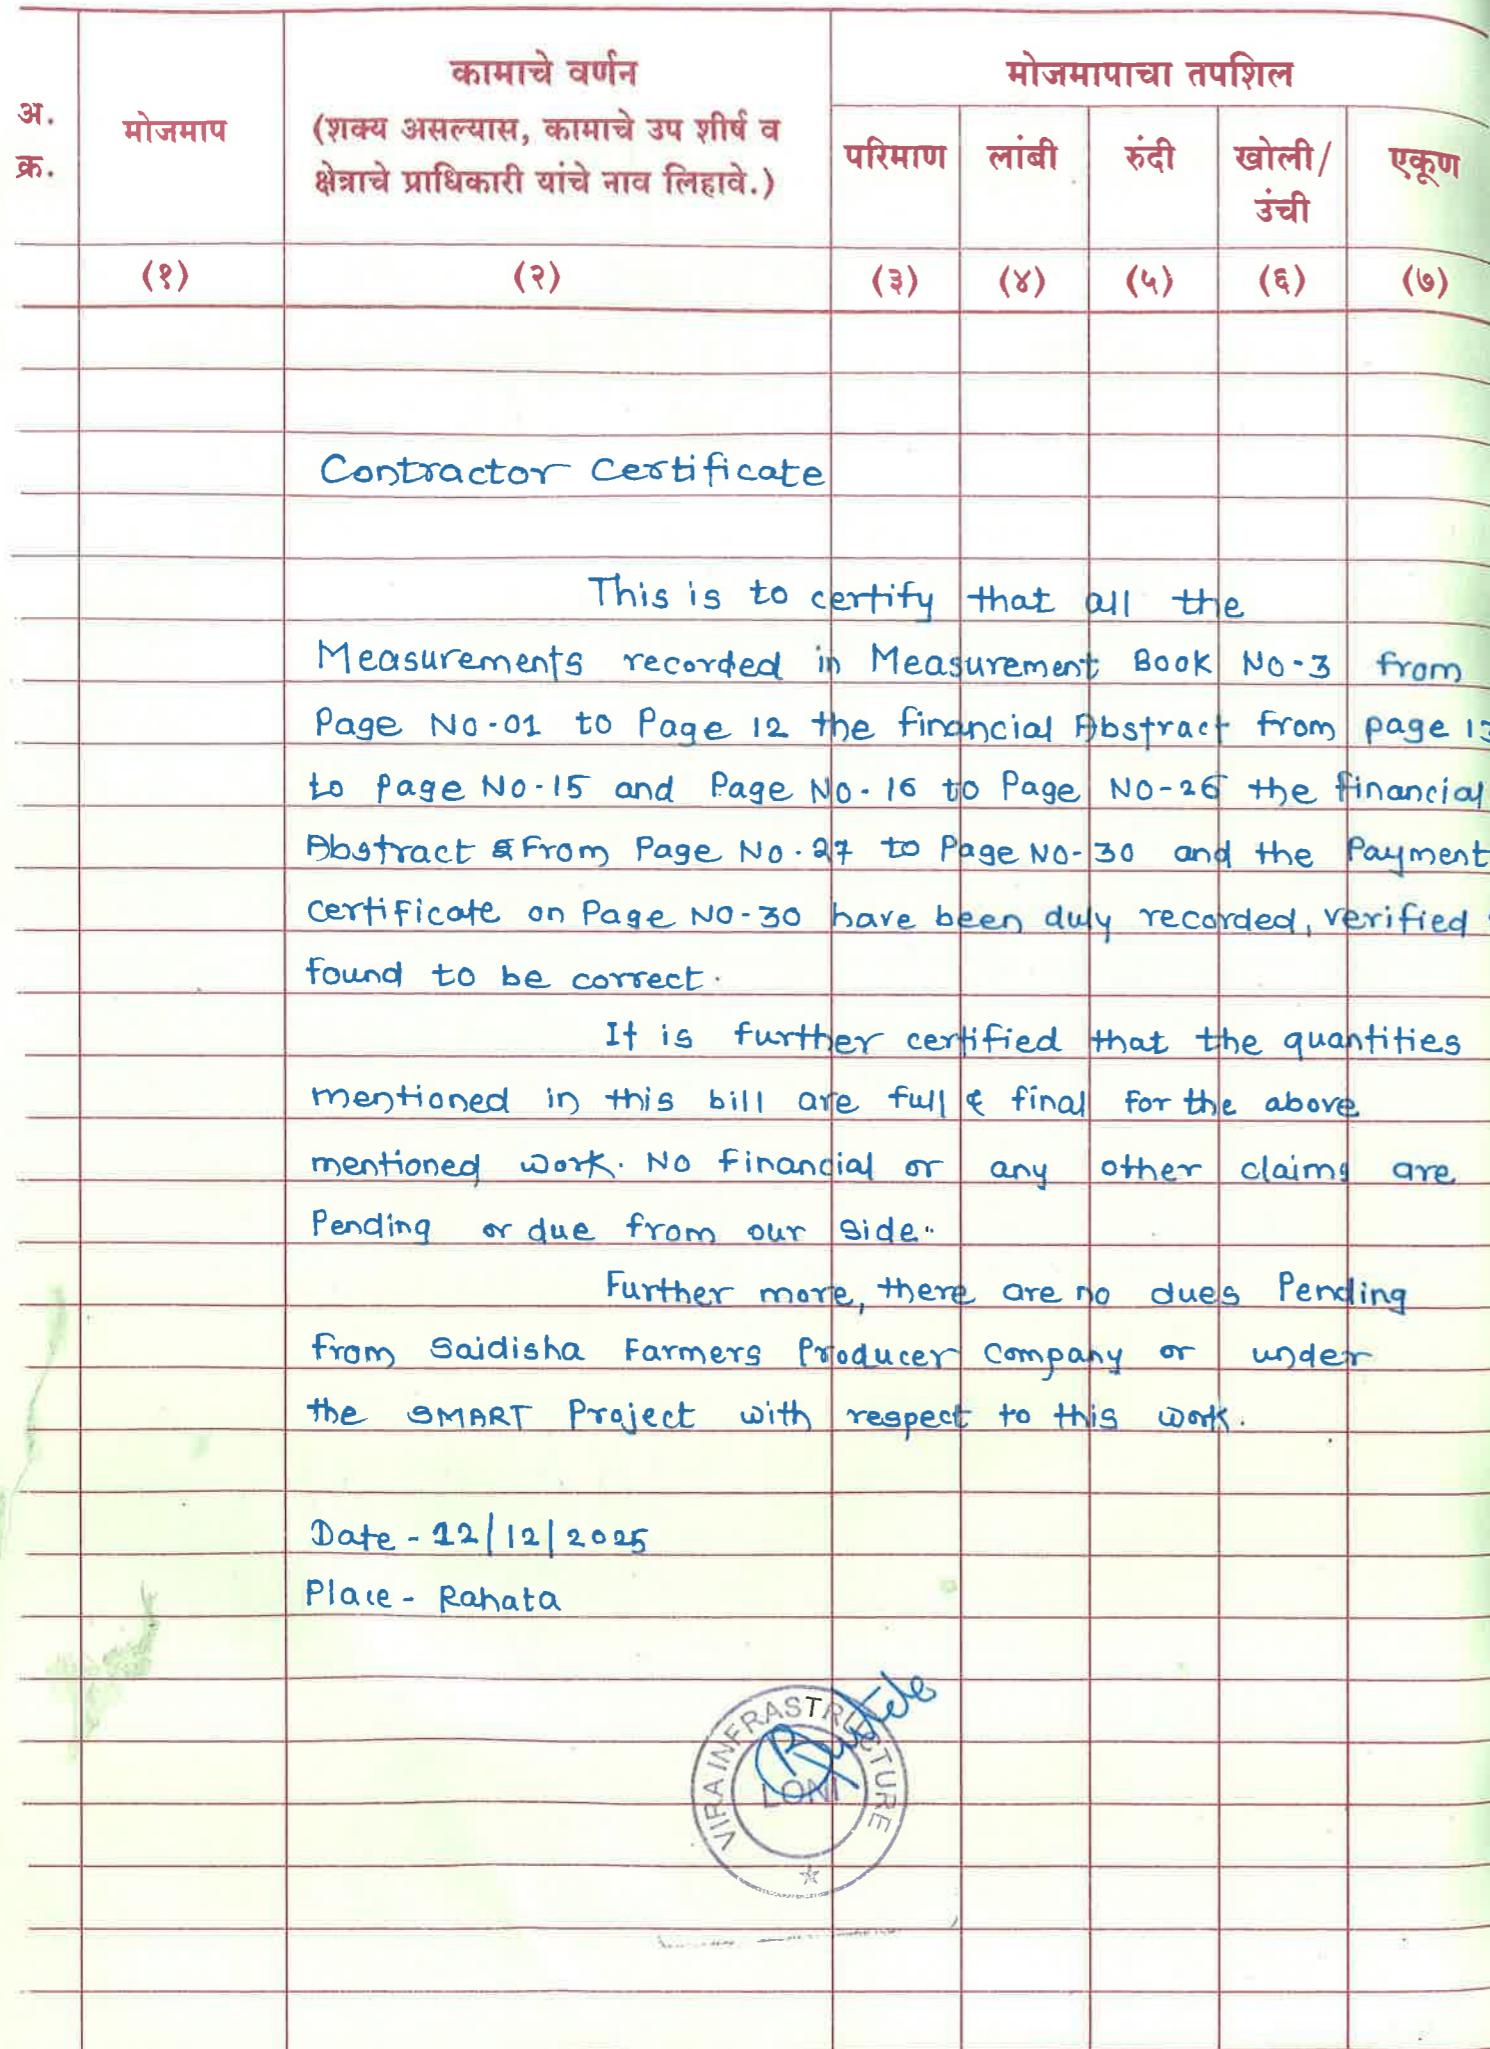 अ.
क्र.
मोजमाप
कामाचे वर्णन
(शक्य असल्यास, कामाचे उप शीर्ष व
क्षेत्राचे प्राधिकारी यांचे नाव लिहावे.)
मोजमापाचा तपशिल
परिमाण
लांबी
रुंदी
खोली/
उंची
एकूण
(१) (२) (३) (४) (५) (६) (७)
Contractor Certificate
This is to certify that all the
Measurements recorded in Measurement Book No-3 from
Page No-01 to Page 12 the financial Abstract from page 13
to page No-15 and Page No. 16 to Page No-26 the financial
Abstract & From Page No. 27 to Page No-30 and the Payment
certificate on Page No-30 have been duly recorded, verified
found to be correct.
It is further certified that the quantities
mentioned in this bill are full & final for the above
mentioned work. No financial or any other claims are
Pending or due from our side.
Further more, there are no dues Pending
from Saidisha Farmers Producer Company or under
the SMART Project with respect to this work.
Date - 12/12/2025
Place - Rahata
VIRA INFRASTRUCTURE
LONI